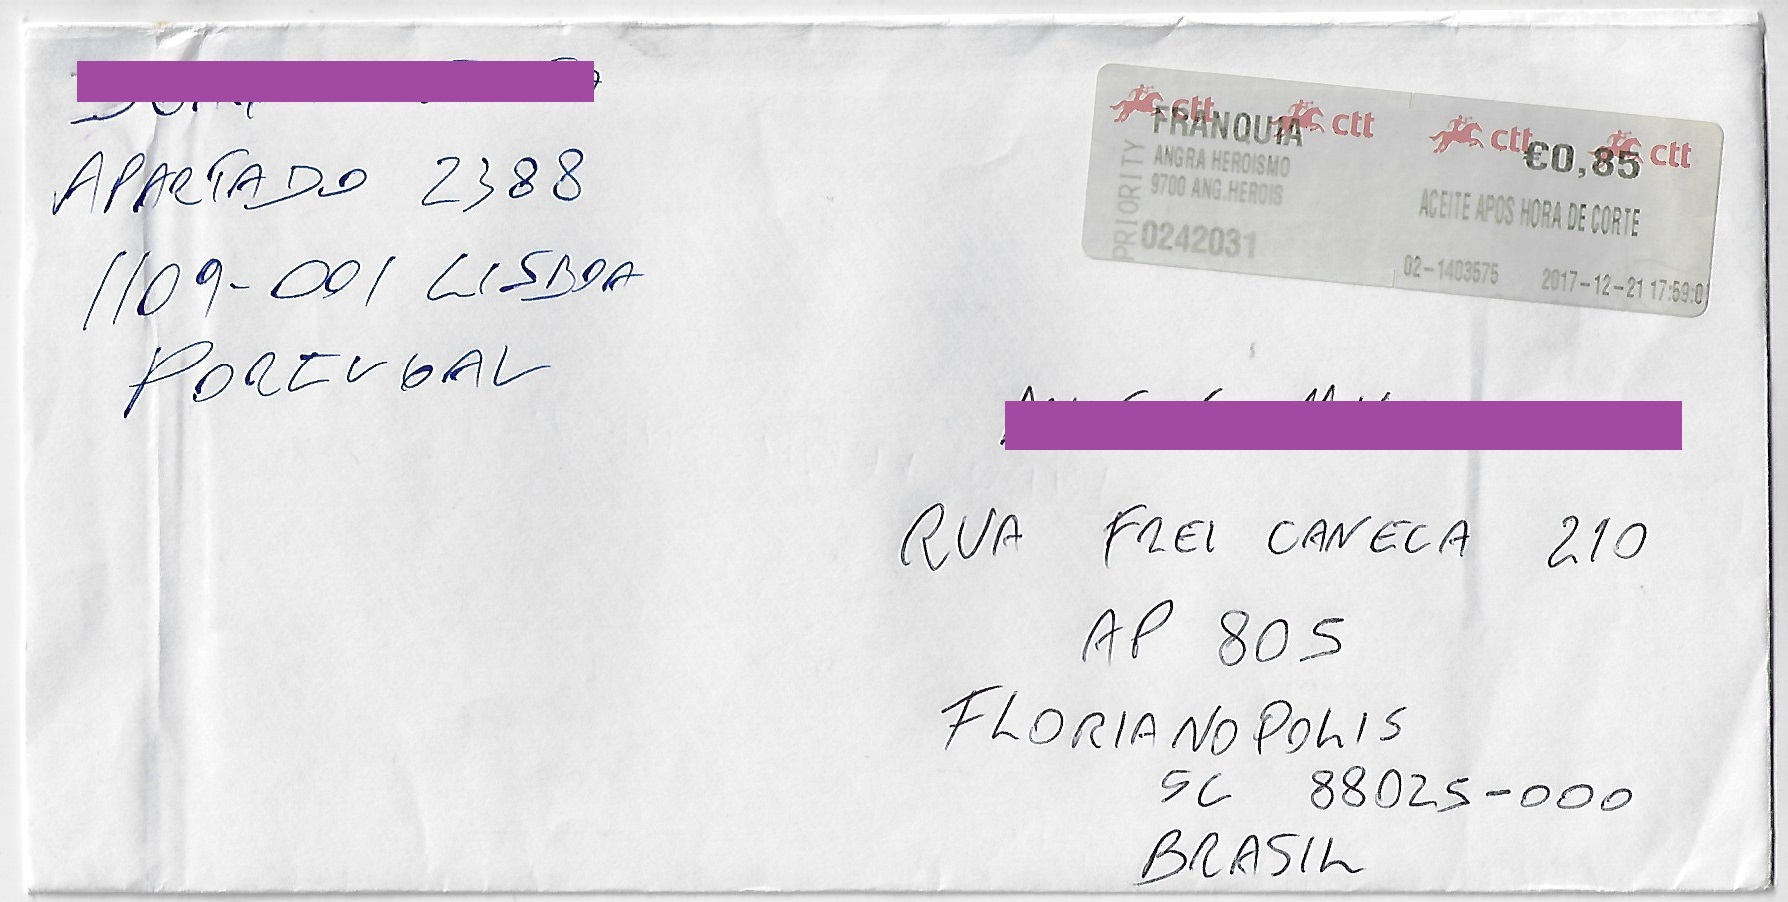 APARTADO 2388
1109-001 LISBOA
PORTUGAL
ctt ctt ctt ctt
FRANQUIA
€0,85
PRIORITY
ANGRA HEROISMO
9700 ANG.HEROIS
0242031
ACEITE APOS HORA DE CORTE
02-1403575 2017-12-21 17:59:0
RUA FREI CANECA 210
AP 805
FLORIANOPOLIS
SC 88025-000
BRASIL